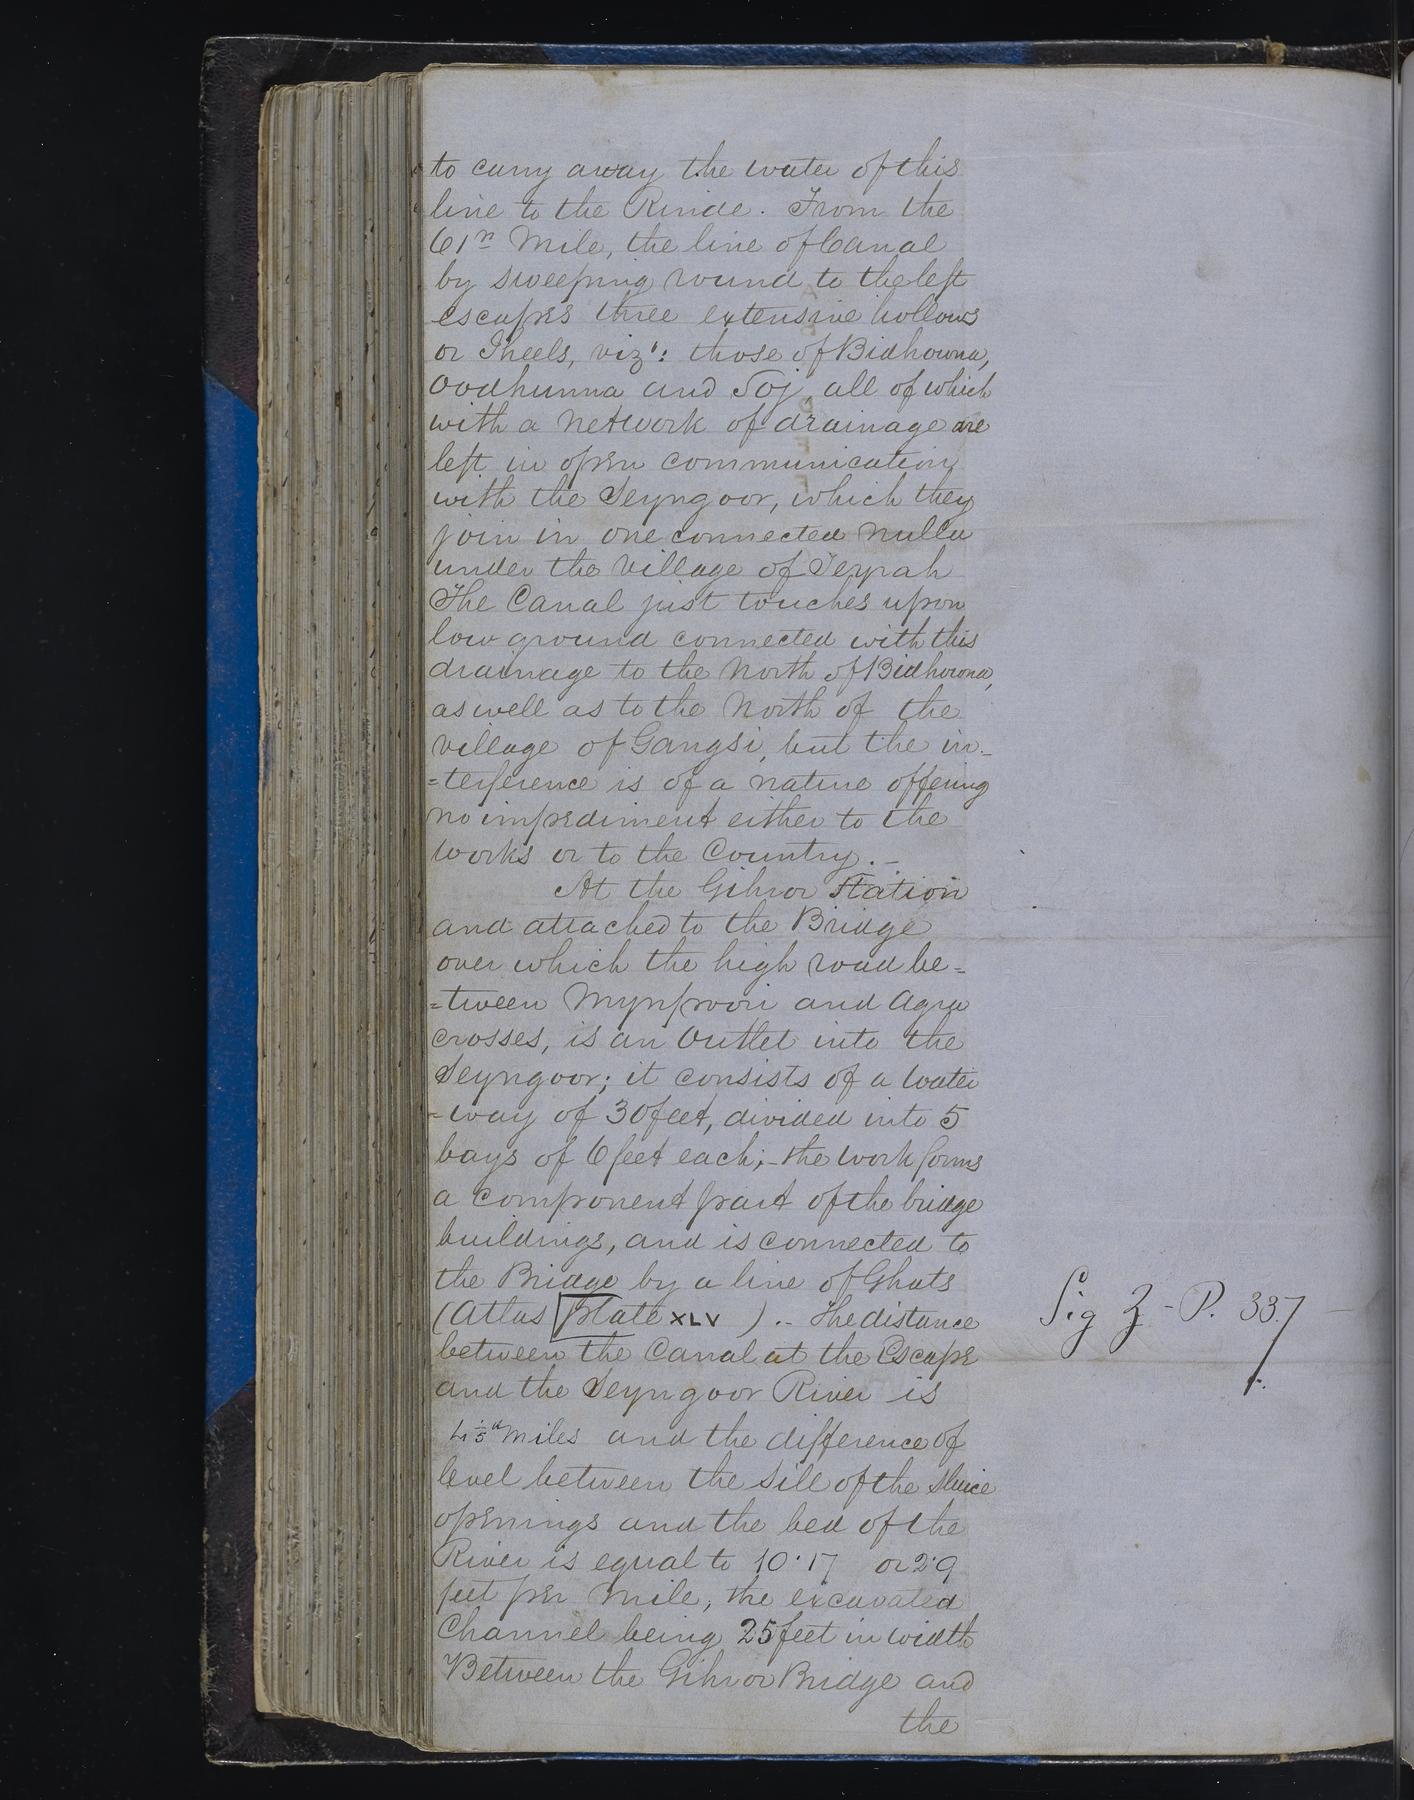 to carry away the water of this
line to the Rinde. From the
61st Mile, the line of Canal
by sweeping round to the left
escapes three extensive hollows
or Jheels, vizt: those of Bidhowna,
Oodhunna and Soj, all of which
with a network of drainage are
left in open communication
with the Seyngoor, which they
join in one connected nulla
under the village of Seyrah
The Canal just touches upon
low ground connected with this
drainage to the North of Bidhowna,
as well as to the North of the
village of Gangsi, but the in-
=terference is of a nature offering
no impediment either to the
works or to the Country. -
At the Gihror Station
and attached to the Bridge
over which the high road be=
=tween Mynpoori and Agra
crosses, is an Outlet into the
Seyngoor; it consists of a water
-way of 30 feet, divided into 5
bays of 6 feet each; - the work forms
a component part of the bridge
buildings, and is connected to
the Bridge by a line of Ghats
(Atlas Plate XLV ). - The distance
between the Canal at the Escape
and the Seyngoor River is
4 1/5th miles and the difference of
level between the sill of the sluice
openings and the bed of the
River is equal to 10.17 or 2.9
feet per mile, the excavated
Channel being 25 feet in width
Between the Gihror Bridge and
the
Sig Z - P. 337